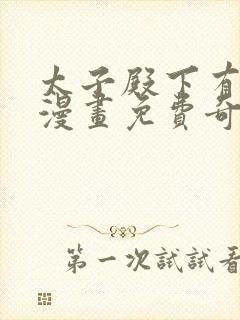 太子殿下有
漫畫免費奇
第一次試試看